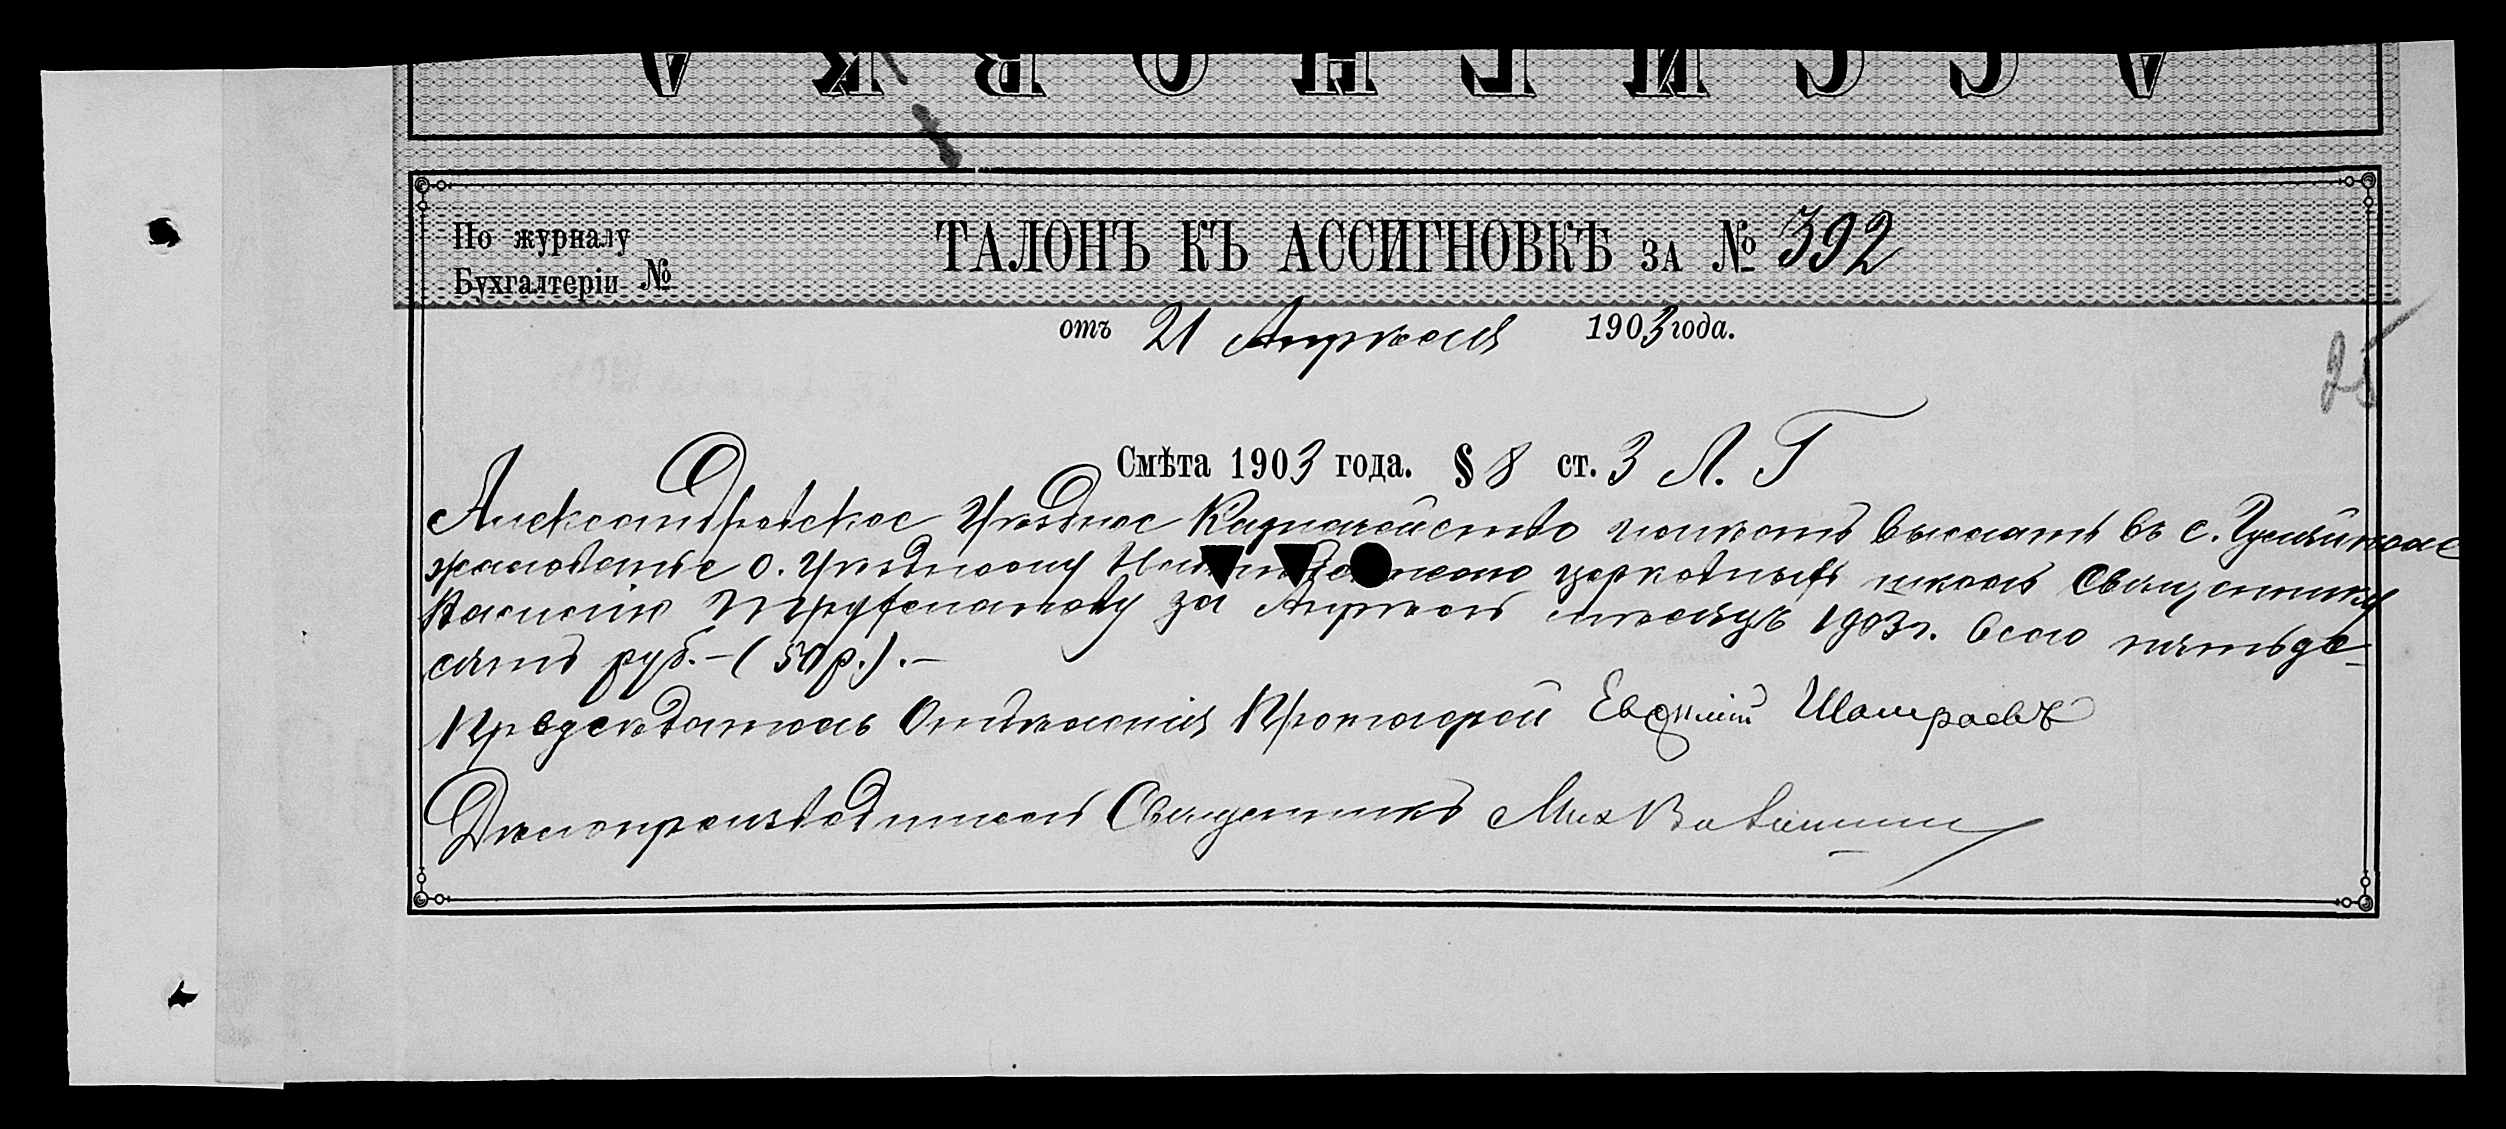 АССИГНОВКА
По журналу
Бухгалтеріи №
ТАЛОНЪ КЪ АССИГНОВКѢ ЗА № 392
отъ 21 Апрѣля 1903 года.
25
Смѣта 1903 года. § 8 ст. 3 Л. Г
Александровское Уѣздное Казначейство имѣетъ выслать въ с. Гуляйполе
жалованье о. Уѣздному церковныхъ школъ Священнику
Василію за Апрѣль мѣсяцъ 1903 г. всего пятьде-
сятъ руб. – (50 р.). –
Предсѣдатель Отдѣленія Протоіерей Евѳимій Шамраевъ
Дѣлопроизводитель Священникъ Мих